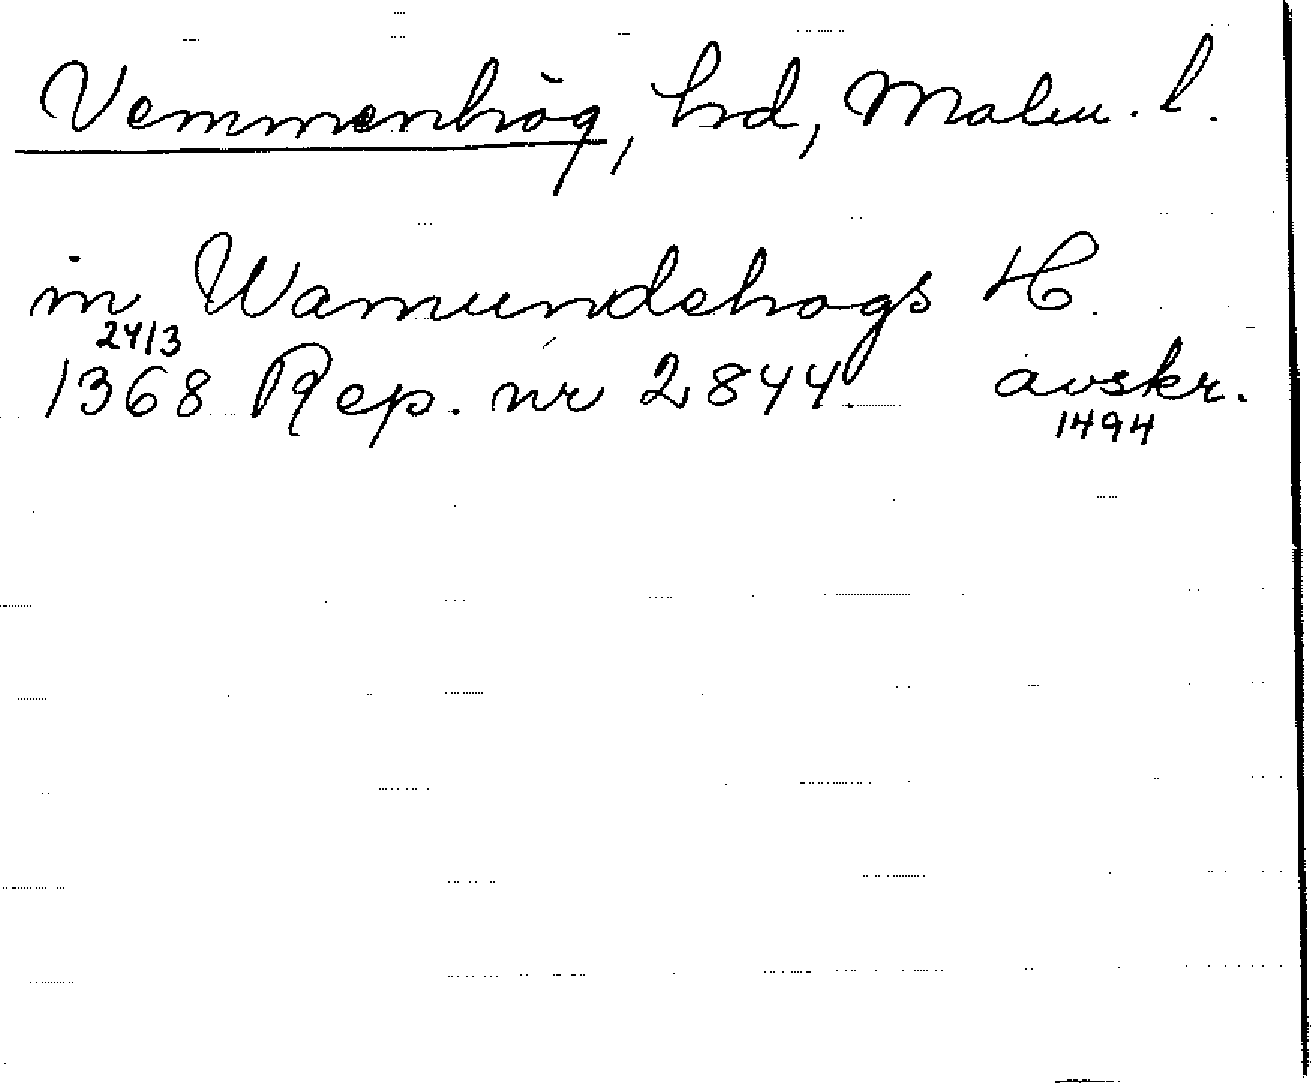 Vemmenhög, hd, Malm. l.
in Wamundehogs H.
24/3
1368 Rep. nr 2844 avskr.
1494